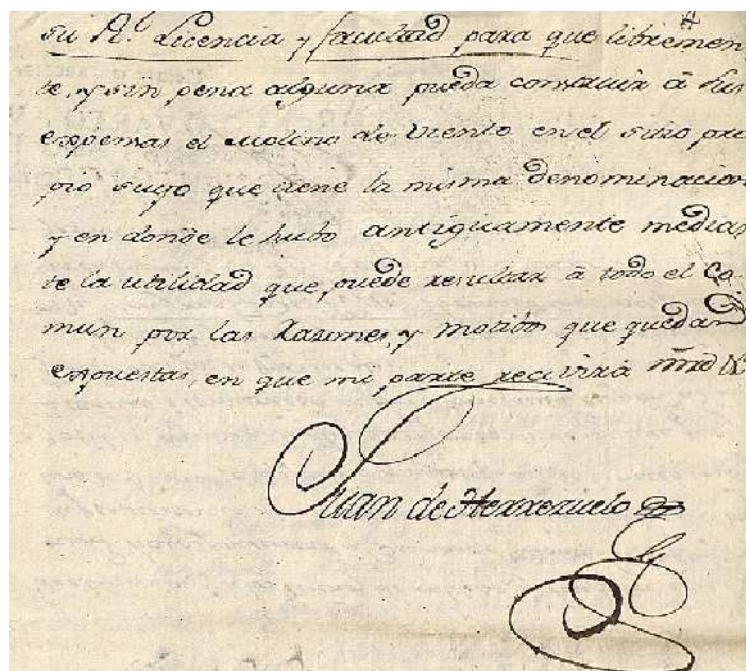 su Rl. Licencia y facultad para que libremen
te, y sin pena alguna pueda construir â sus
expensas el molino de viento en el sitio pro
pio suyo que tiene la misma denominacion
y en donde le hubo antiguamente median
te la utilidad que puede resultar â todo el Co
mun por las Razones, y motibos que quedan
expuestas, en que mi parte recivirà mrd
Juan de Herrezuelo